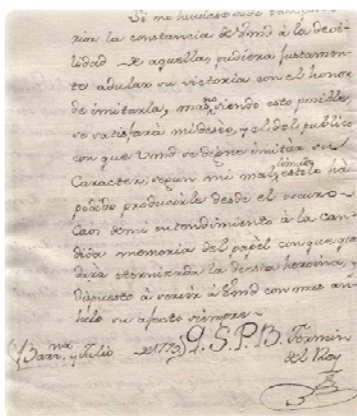 Si me huviese
rior la constancia de Vmd à la devi-
lidad de aquellas, pudiera justamen-
te adular su victoria con el honor
de imitarla, mas siendo esto posible,
se satisfará mi deseo, y el del publico
con que Vmd se digne imitàr su
Caracter; segun mi mal estilo hà
podido producirle desde el oscuro
Caos de mi entendimiento à la can-
dida memoria del papèl con que
dàra eternizada la de esta heroina, y
dispuesto à servir à Vmd con mas an-
helo su afecto siempre
Barna. y Julio de 1773) Q. S. P. B. Fermin
del Rey